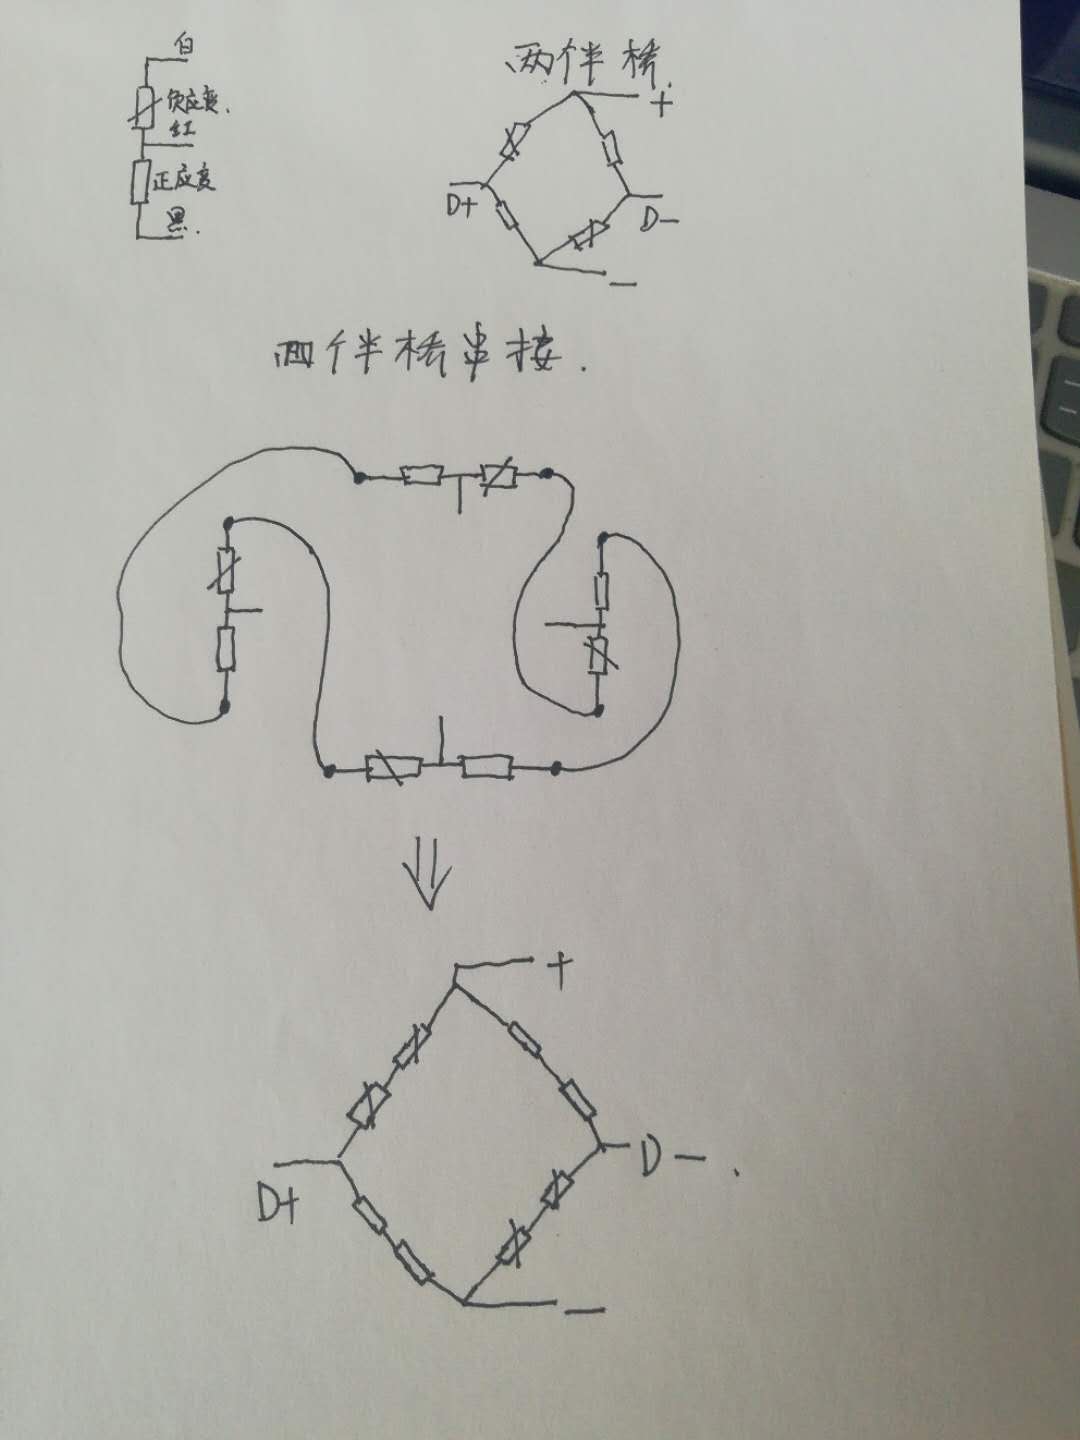 白
负应变.
红
正应变
黑.
两伴桥.
+
D+
D-
-
四伴桥串接.
+
D+
D-.
-